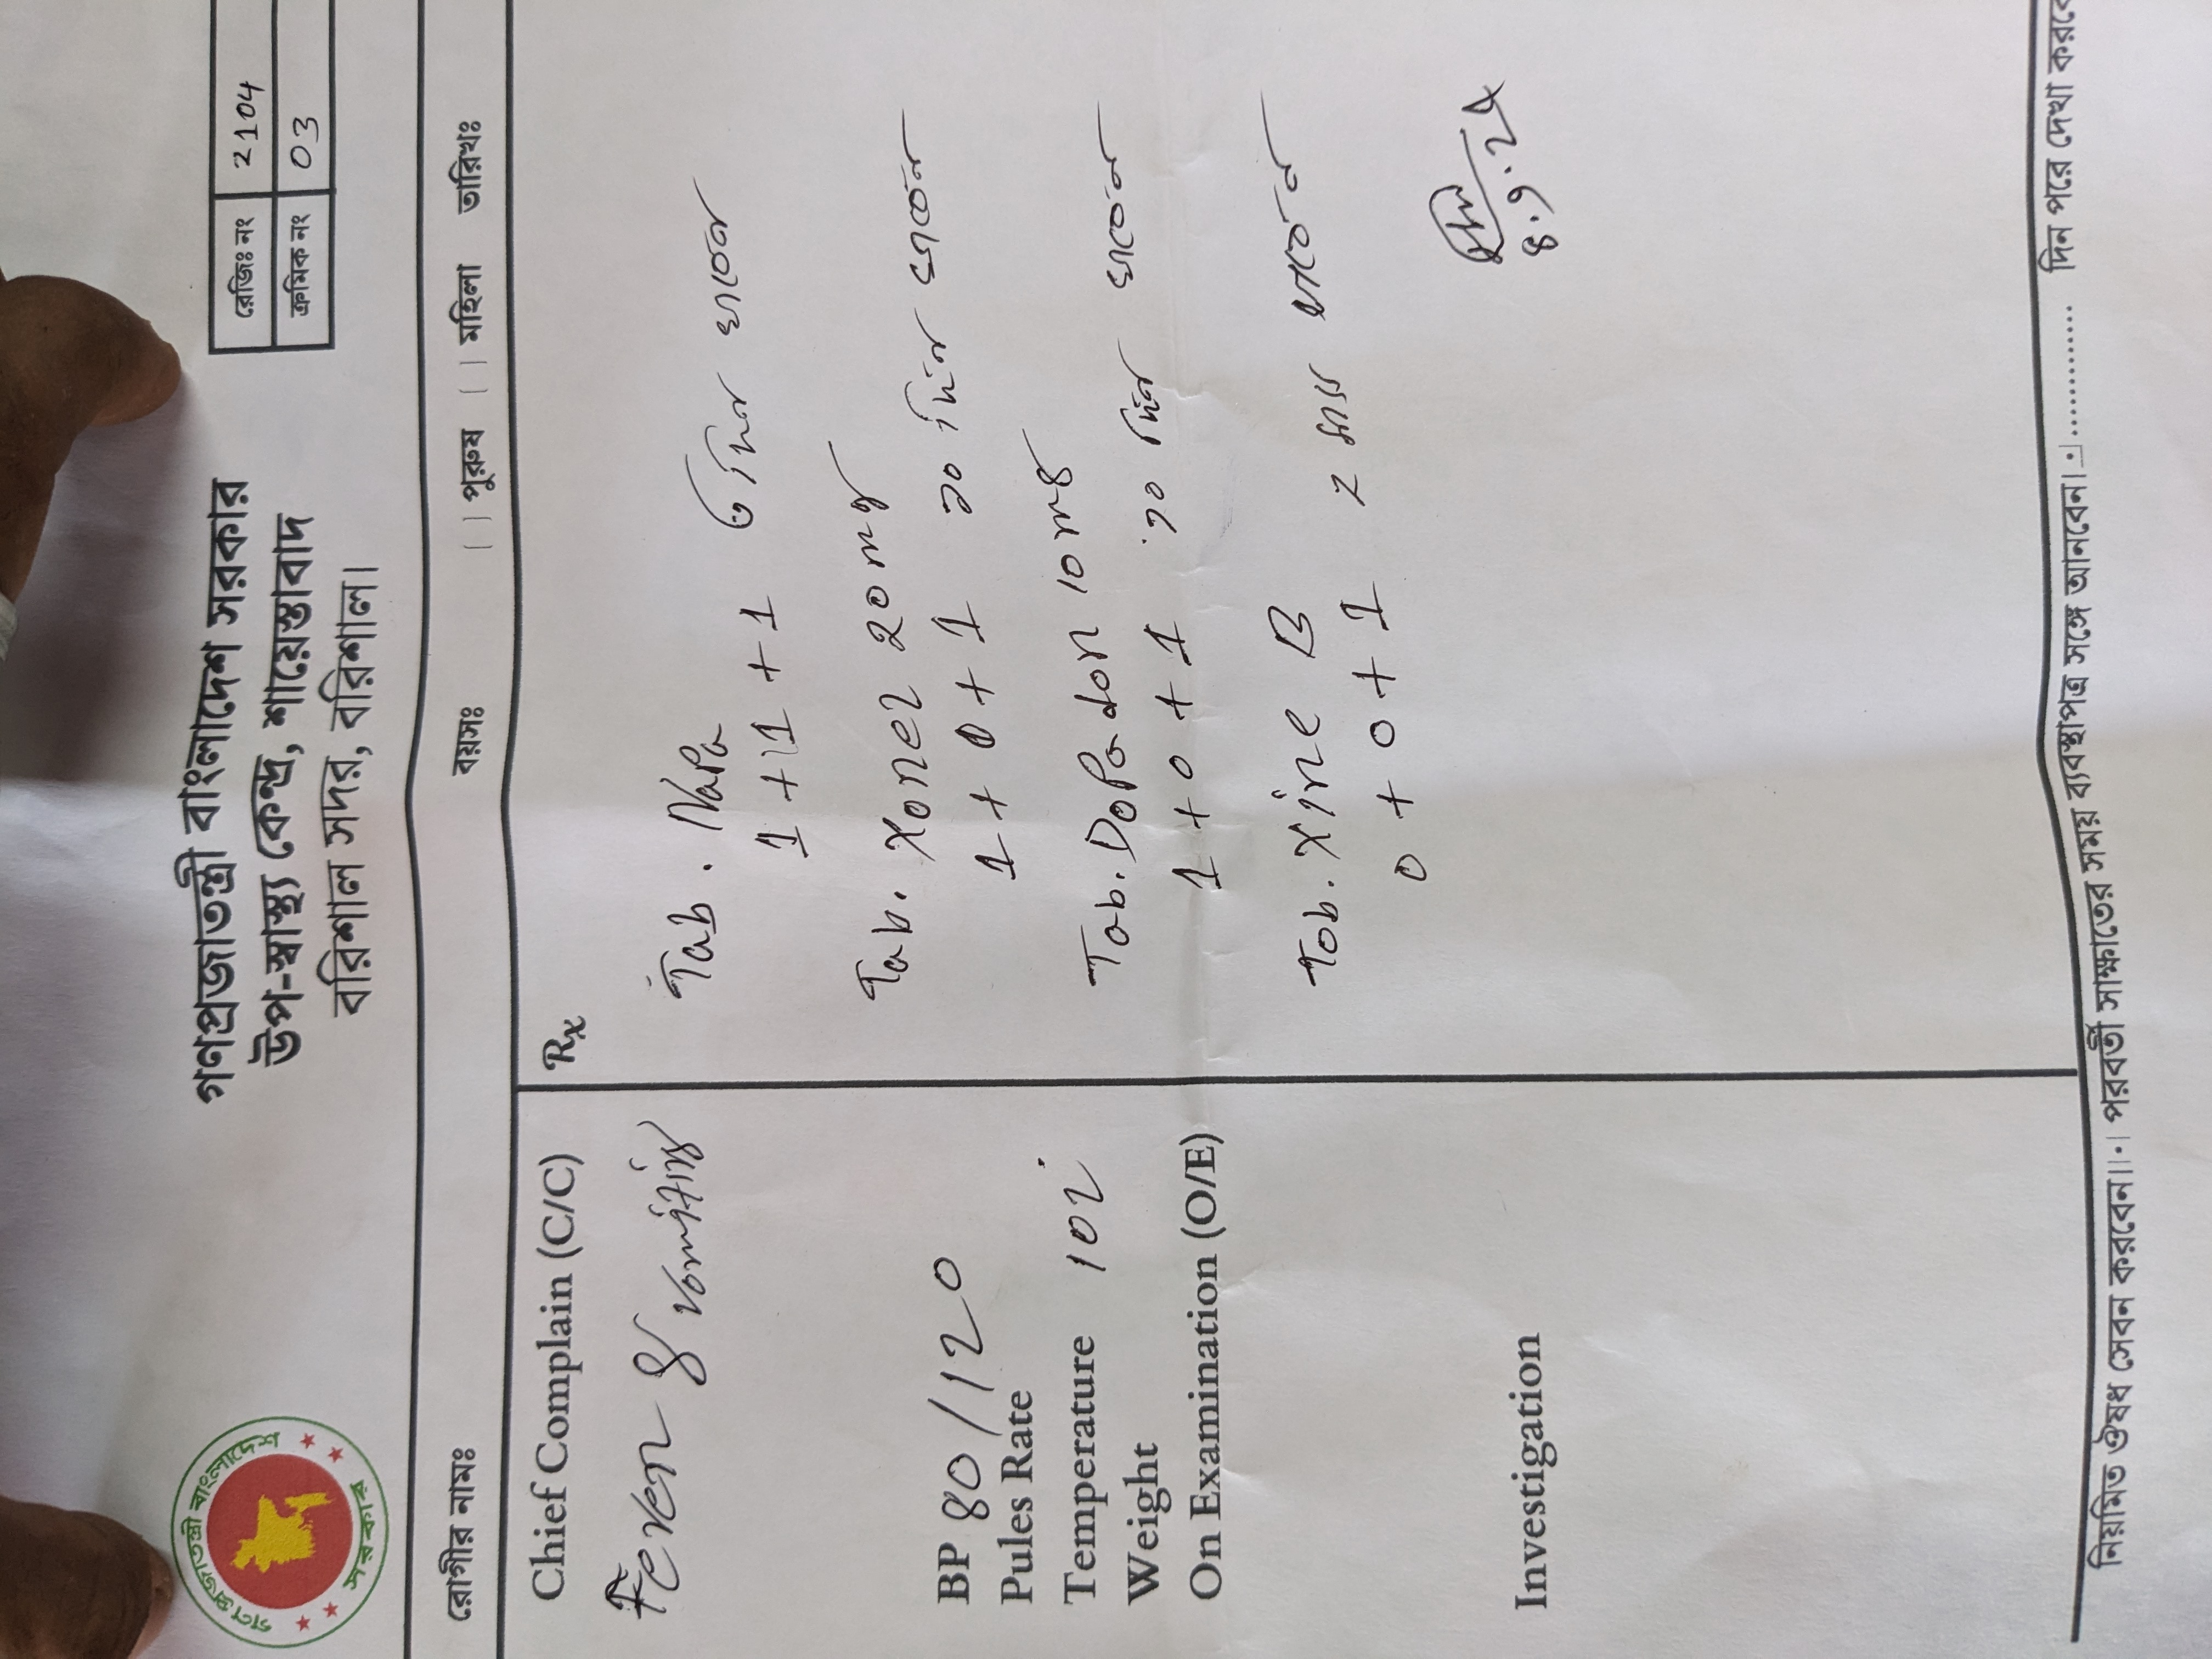 গণপ্রজাতন্ত্রী বাংলাদেশ সরকার
গণপ্রজাতন্ত্রী বাংলাদেশ সরকার
উপ-স্বাস্থ্য কেন্দ্র, শায়েস্তাবাদ
বরিশাল সদর, বরিশাল।
রেজিঃ নং 2104
ক্রমিক নং 03
রোগীর নামঃ বয়সঃ ( ) পুরুষ ( ) মহিলা তারিখঃ
Chief Complain (C/C)
Fever & vomiting
BP 80/120
Pules Rate
Temperature 102
Weight
On Examination (O/E)
Investigation
Rx
Tab. Napa
1+1+1 ৩ দিন খাবেন
Tab. Xonel 20mg
1+0+1 ১০ দিন খাবেন
Tab. Dopadon 10mg
1+0+1 ১০ দিন খাবেন
Tab. Xine B
0+0+1 ২ মাস খাবেন
নিয়মিত ঔষধ সেবন করবেন।। পরবর্তী সাক্ষাতের সময় ব্যবস্থাপত্র সঙ্গে আনবেন। ............ দিন পরে দেখা করবে